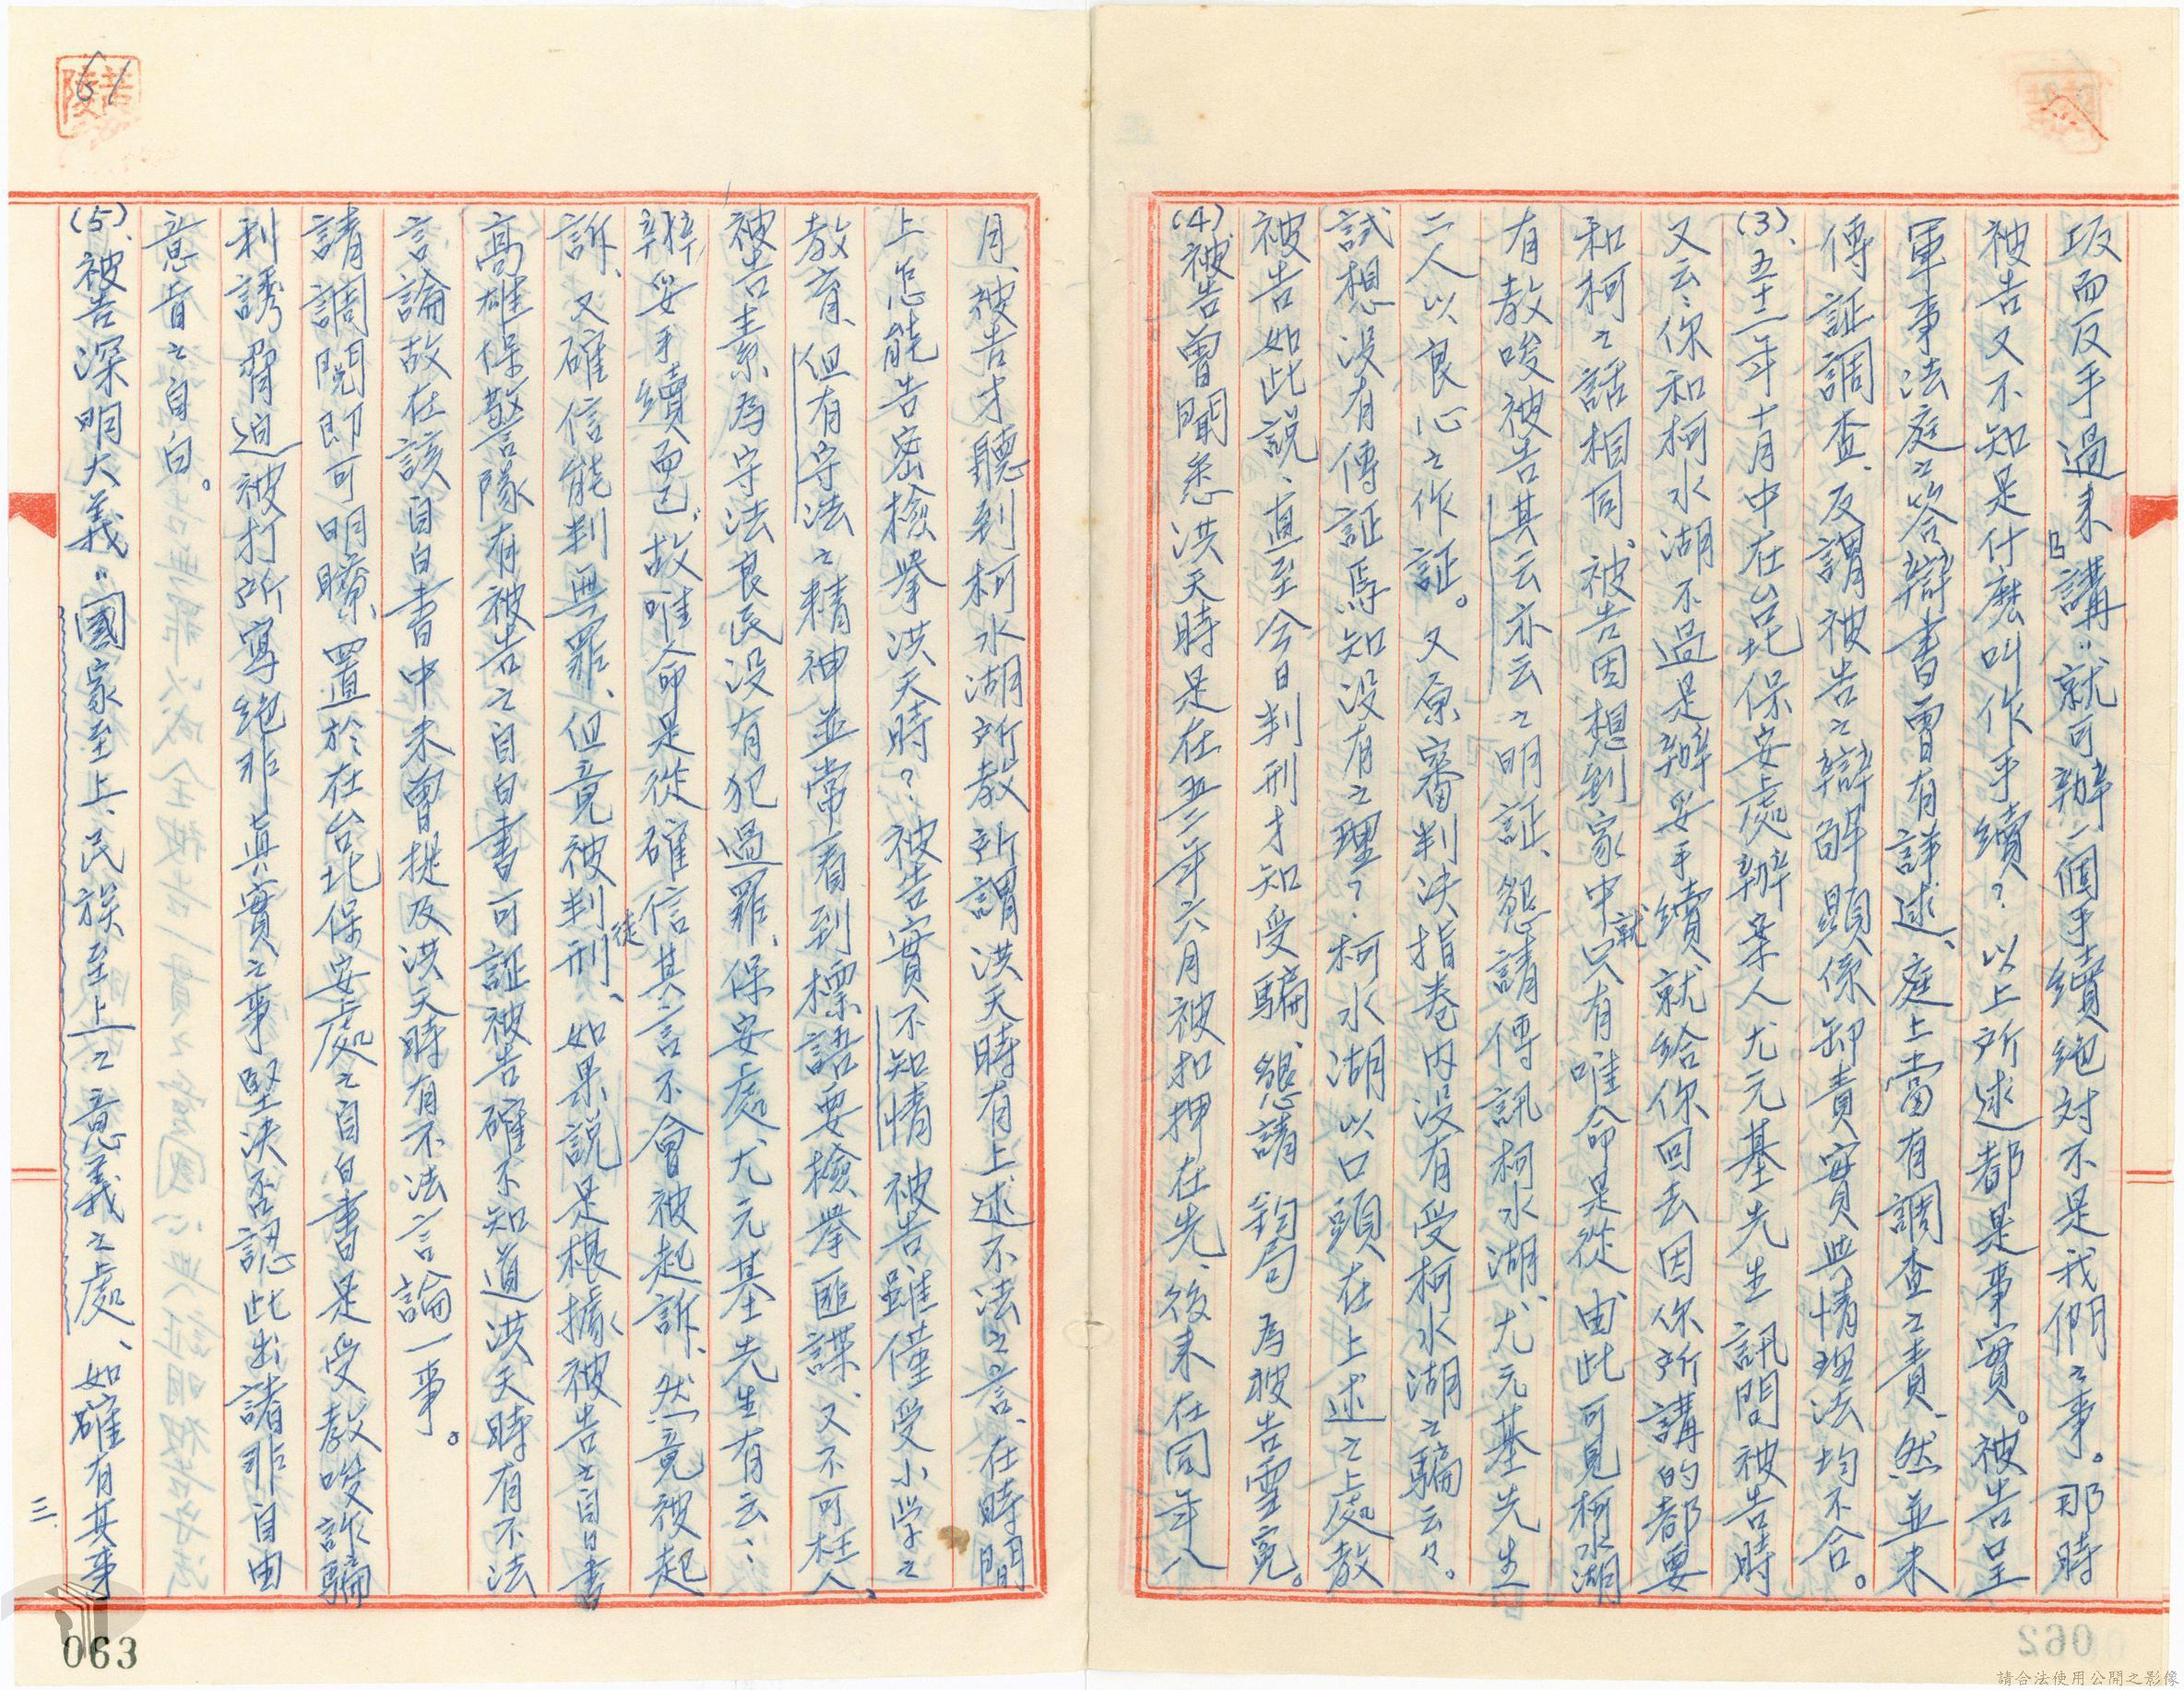 坂而反手過來講："就可辦一個手續絕對不是我們之事。那時
被告又不知是什麽叫作手續？以上所述都是事實。被告呈
軍事法庭之答辯書曾有詳述、庭上當有調查之責、然並未
傳証調查、反謂被告之辯解顯係卸責實與情理法均不合。
(3)、五十二年十月中在台北保安處辦案人尤元基先生訊問被告時
又云：你和柯水湖不過是辦妥手續就給你回去因你所講的都要
和柯之話相同、被告因想到家中就只有唯命是從由此可見柯水湖
有教唆被告其云亦云之明証、懇請傳訊柯水湖、尤元基先生
二人以良心之作証。又原審判決指卷內没有受柯水湖之騙云々。
試想没有傳証焉知没有之理？柯水湖以口頭在上述之上處教
被告如此説、直至今日判刑才知受騙、懇請 鈞局 為被告雪冤。
(4)、被告曾聞悉洪天時是在五二年六月被扣押在先、後來在同年八
月、被告才聽到柯水湖所教所謂洪天時有上述不法之言、在時間
上怎能告密檢舉洪天時？被告實不知情被告雖僅受小学之
教育、但有守法之精神並常看到標語要檢舉匪諜、又不可枉人、
被告素為守法良民没有犯過罪、保安處尤元基先生有云：
辦妥手續而已、故唯命是從確信其言不會被起訴、然竟被起
訴、又確信能判無罪、但竟被判徒刑、如果説是根據被告之自白書
高雄保警隊有被告之自白書可証被告確不知道洪天時有不法
言論故在該自白書中未曾提及洪天時有不法言論一事。
請調閲即可明瞭、置於在台北保安處之自白書是受教唆詐騙
利誘脅迫被打所寫絕非真實之事堅決否認此出諸非自由
意旨之自白。
(5)、被告深明大義"國家至上、民族至上之意義之處、如確有其事
三、
61
063
062
請合法使用公開之影像